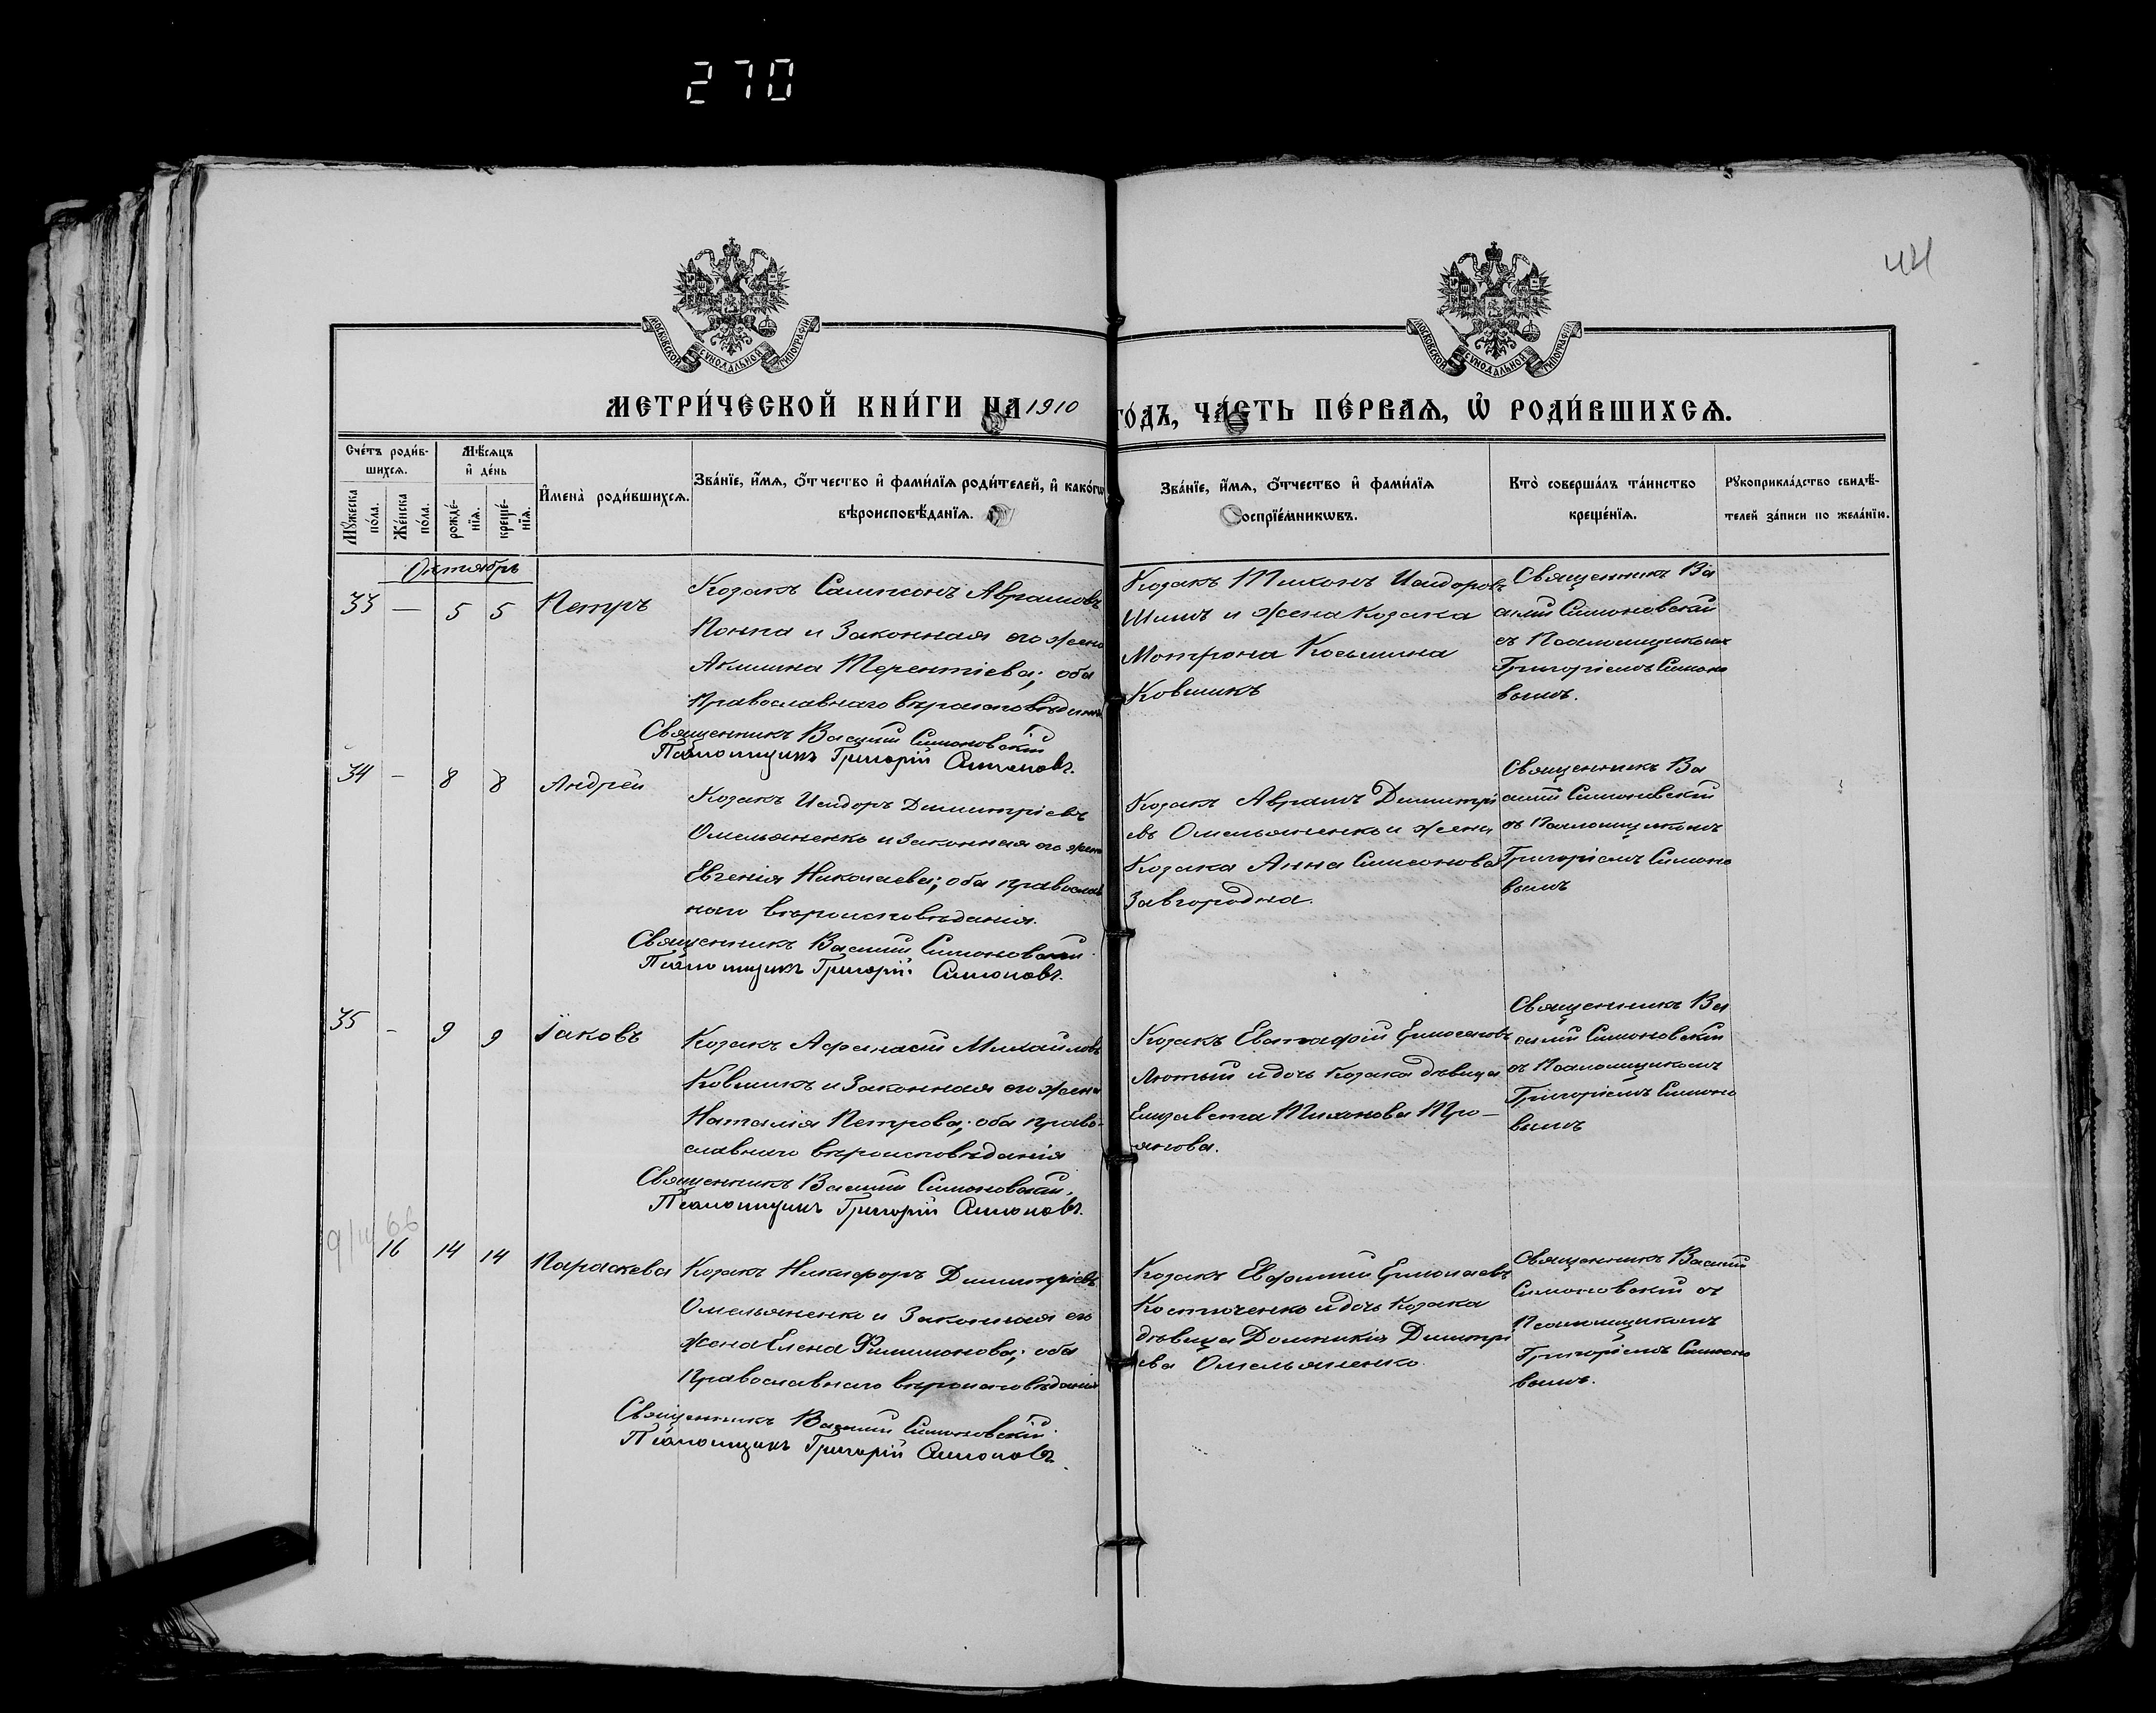 270
44
МОСКОВСКОЙ СѴНОДАЛЬНОЙ ТИПОГРАФІИ
МОСКОВСКОЙ СѴНОДАЛЬНОЙ ТИПОГРАФІИ
МЕТРИ́ЧЕСКОЙ КНИ́ГИ НА 1910 ГО́ДЪ, ЧА́СТЬ ПЕ́РВАѦ, Ѡ РОДИ́ВШИХСѦ.
Сче́тъ роди́в-
шихсѧ.
Мꙋжеска по́ла.
Же́нска по́ла.
Мѣ́сѧцъ
и де́нь
рожде́-
нїѧ.
креще́-
нїѧ.
И҆мена̀ роди́вшихсѧ.
Зва́нїе, и҆́мѧ, ѻ҆́тчество и҆ фами́лїѧ роди́телей, и҆ како́гѡ
вѣроисповѣ́данїѧ.
Зва́нїе, и҆́мѧ, ѻ҆́тчество и҆ фами́лїѧ
воспрїе́мникѡвъ.
Кто̀ соверша́лъ та́инство
креще́нїѧ.
Рꙋкоприкла́дство свидѣ́-
телей за́писи по жела́нїю.
Октябрь
33 — 5 5 Петръ
Козакъ Сампсонъ Аврамовъ
Попка и законная его жена
Акилина Терентіева; оба
Православнаго вѣроисповѣданія
Священникъ Василій Симоновскій
Псаломщикъ Григорій Симоновъ.
Козакъ Тихонъ Исидоровъ
Шишъ и жена Козака
Мотрона Косьмина
Ковшикъ
Священникъ Ва
силій Симоновскій
съ Псаломщикомъ
Григоріемъ Симоно
вымъ.
34 — 8 8 Андрей
Козакъ Исидоръ Димитріевъ
Омельяненко и законная его жена
Евгенія Николаева; оба православ
наго вѣроисповѣданія.
Священникъ Василій Симоновскій
Псаломщикъ Григорій Симоновъ.
Козакъ Аврамъ Димитрі
евъ Омельяненко и жена
Козака Анна Симеонова
Завгородна.
Священникъ Ва
силій Симоновскій
съ Псаломщикомъ
Григоріемъ Симоно
вымъ
35 - 9 9 Іаковъ
Козакъ Афанасій Михайловъ
Ковшикъ и законная его жена
Наталія Петрова; оба право-
славнаго вѣроисповѣданія
Священникъ Василій Симоновскій,
Псаломщикъ Григорій Симоновъ.
Козакъ Евстафій
Лютый и дочь Козака дѣвица
Елизавета Тихонова Тро-
янова.
Священникъ Ва
силій Симоновскій
съ Псаломщикомъ
Григоріемъ Симоно
вымъ
16 14 14 Параскева
Козакъ Никифоръ Димитріевъ
Омельяненко и законная его
жена Елена Филимонова; оба
православнаго вѣроисповѣданія
Священникъ Василій Симоновскій
Псаломщикъ Григорій Симоновъ.
Козакъ Евфимій Ермолаевъ
Костюченко и дочь Козака
дѣвица Домникія Димитрі
ева Омельяненко
Священникъ Василій
Симоновскій съ
Псаломщикомъ
Григоріемъ Симоно
вымъ.